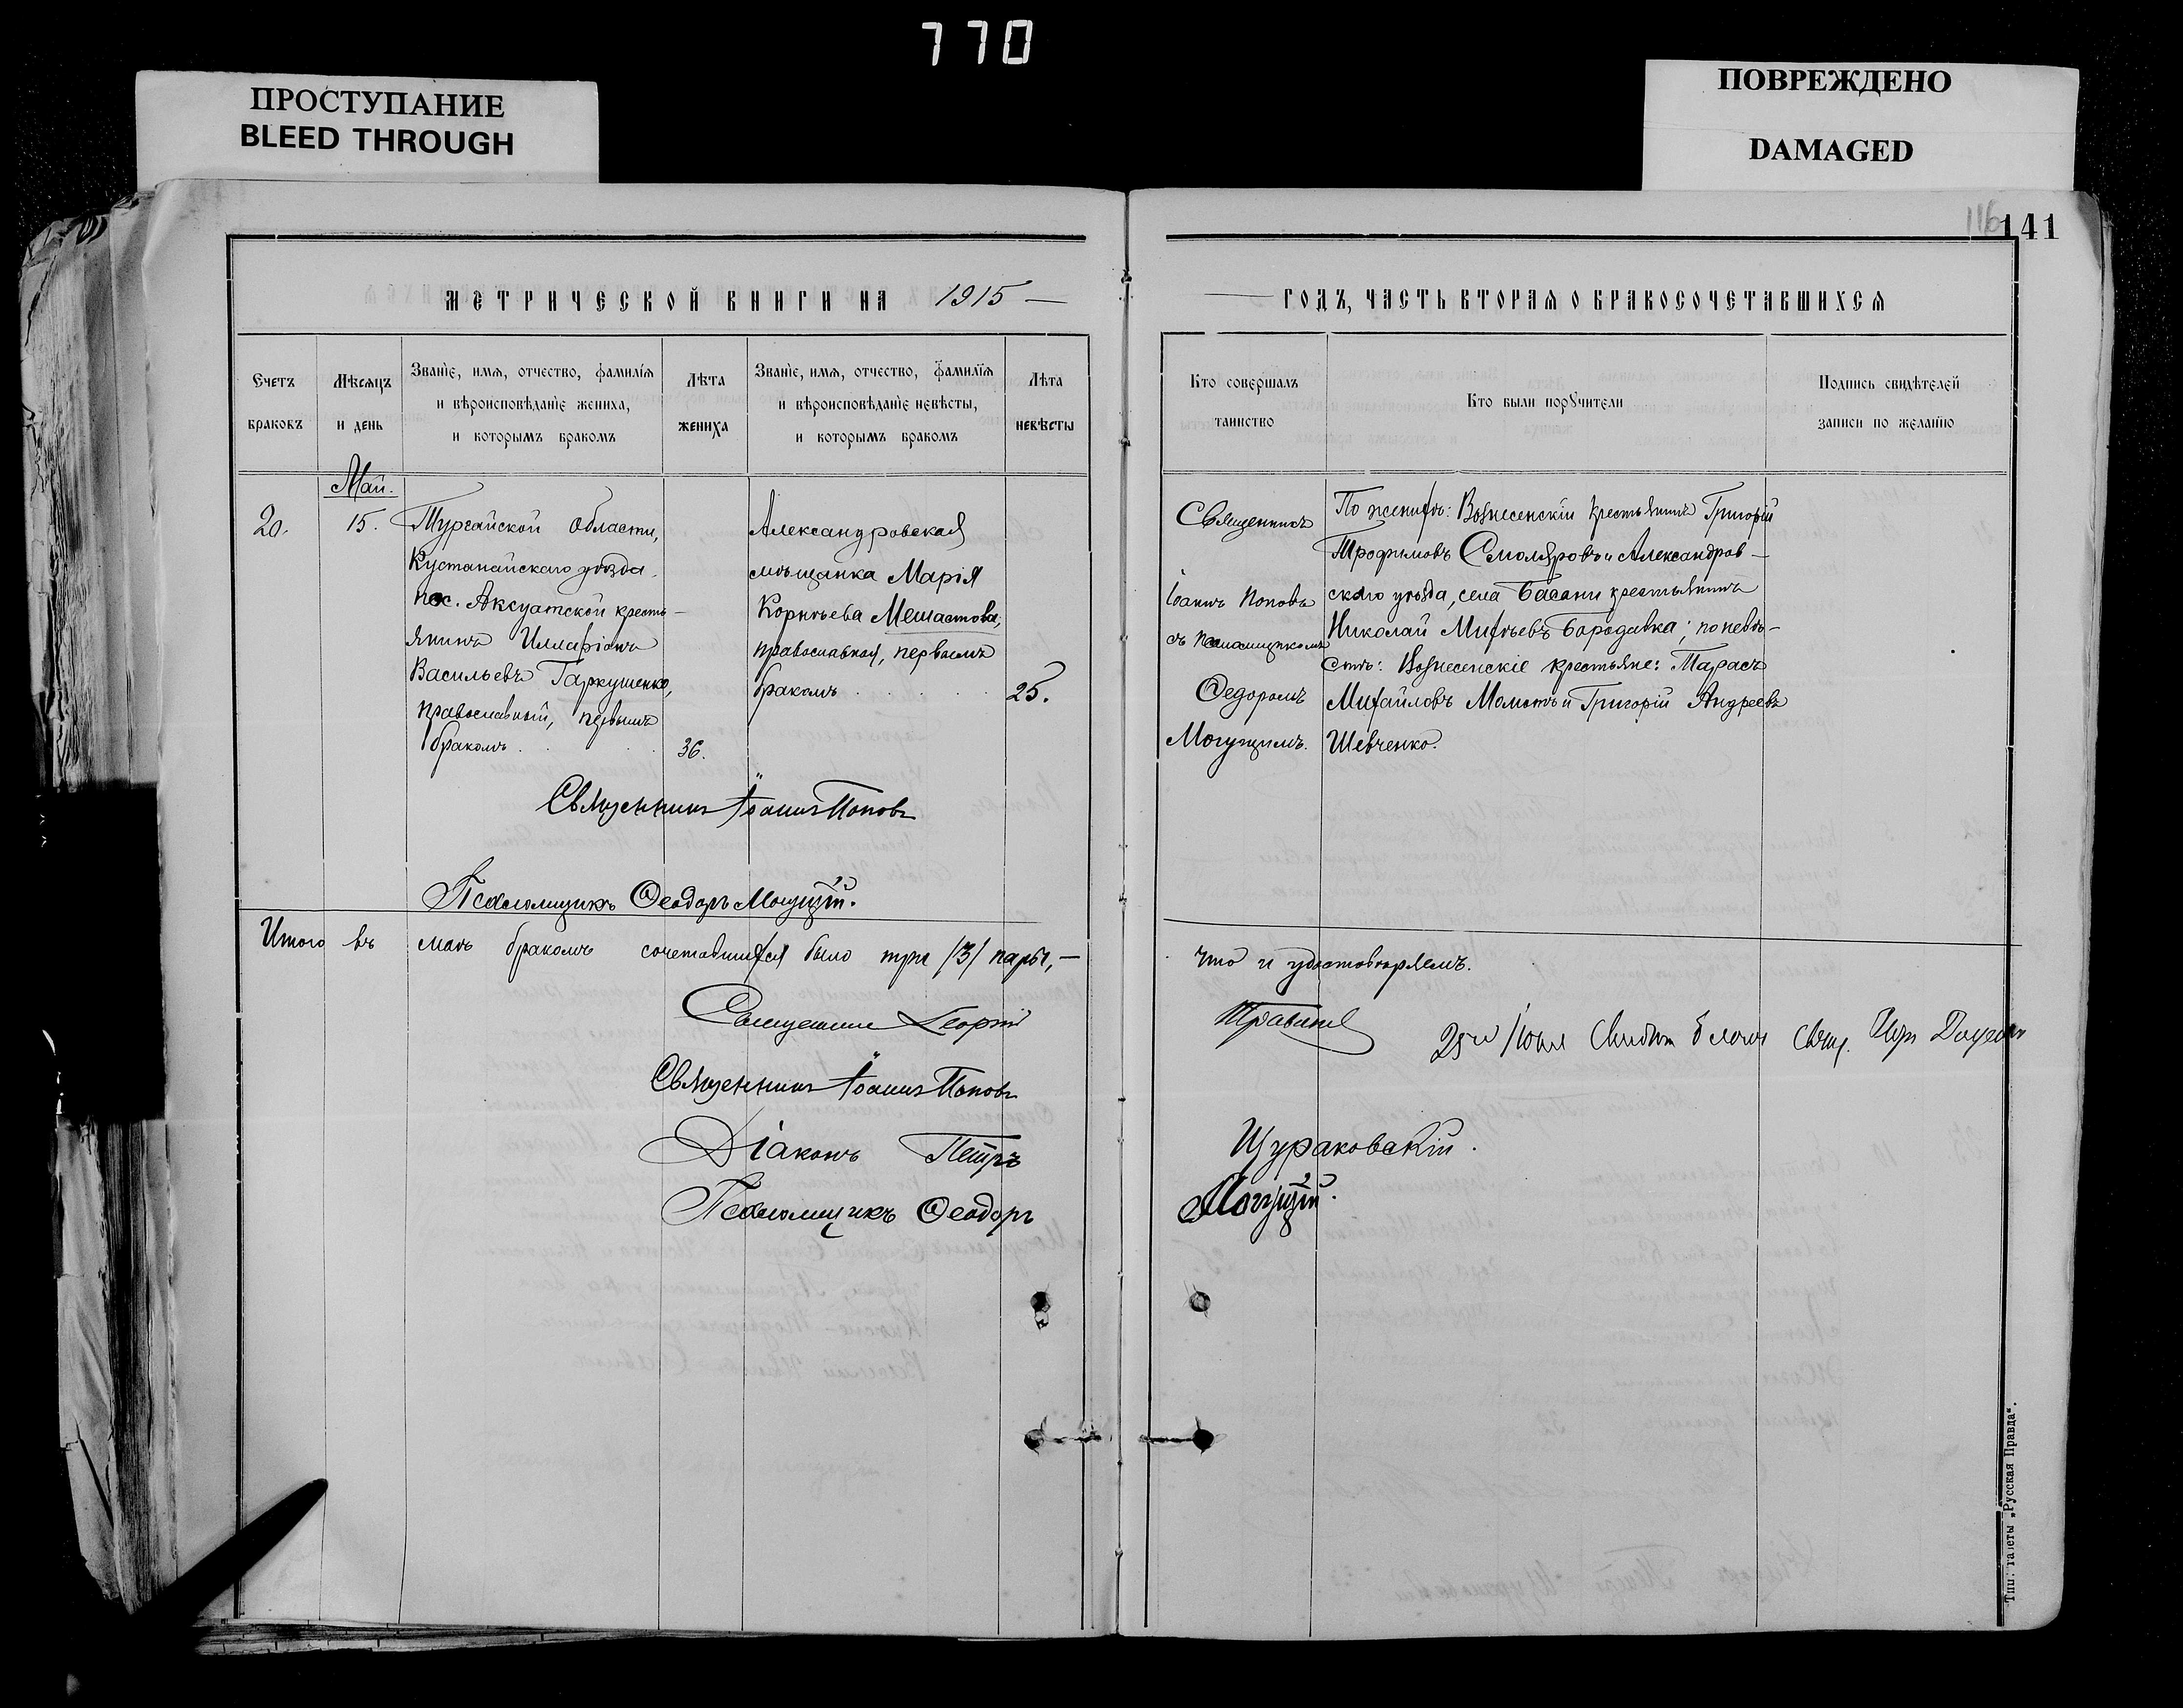 770
ПРОСТУПАНИЕ
BLEED THROUGH
ПОВРЕЖДЕНО
DAMAGED
116
141
МЕТРИЧЕСКОЙ КНИГИ НА 1915 —
Счетъ
браковъ
Мѣсяцъ
и день
Званіе, имя, отчество, фамилія
и вѣроисповѣданіе жениха,
и которымъ бракомъ
Лѣта
жениха
Званіе, имя, отчество, фамилія
и вѣроисповѣданіе невѣсты,
и которымъ бракомъ
Лѣта
невѣсты
20.
Май.
15.
Тургайской области,
Кустанайскаго уѣзда,
пос. Аксуатской кресть-
янинъ Илларіонъ
Васильевъ Гаркушенко,
православный, первымъ
бракомъ
36.
Александровская
мѣщанка Марія
Корнѣева Мешастова,
православная, первымъ
бракомъ
25.
Священникъ Іоаннъ Поповъ
Псаломщикъ Ѳеодоръ Могущій.
Итого въ маѣ бракомъ сочетавшихся было три /3/ пары, —
Священник Георгій
Священникъ Іоаннъ Поповъ
Діаконъ Петръ
Псаломщикъ Ѳеодоръ
ГОДЪ, ЧАСТЬ ВТОРАЯ О БРАКОСОЧЕТАВШИХСЯ
Кто совершалъ
таинство
Кто были поручители
Подпись свидѣтелей
записи по желанію
Священникъ
Іоаннъ Поповъ
съ псаломщикомъ
Ѳедоромъ
Могущимъ.
По женихѣ: Вознесенскій крестьянинъ Григорій
Трофимовъ Смоляровъ и Александров-
скаго уѣзда, села Басани крестьянинъ
Николай Михѣевъ Бородавка; по невѣ-
стѣ: Вознесенскіе крестьяне: Тарасъ
Михайловъ Момотъ и Григорій Андреевъ
Шевченко.
что и удостовѣряемъ.
25го Іюня
Щураковскій.
Могущій.
Тип. газеты „Русская Правда“.